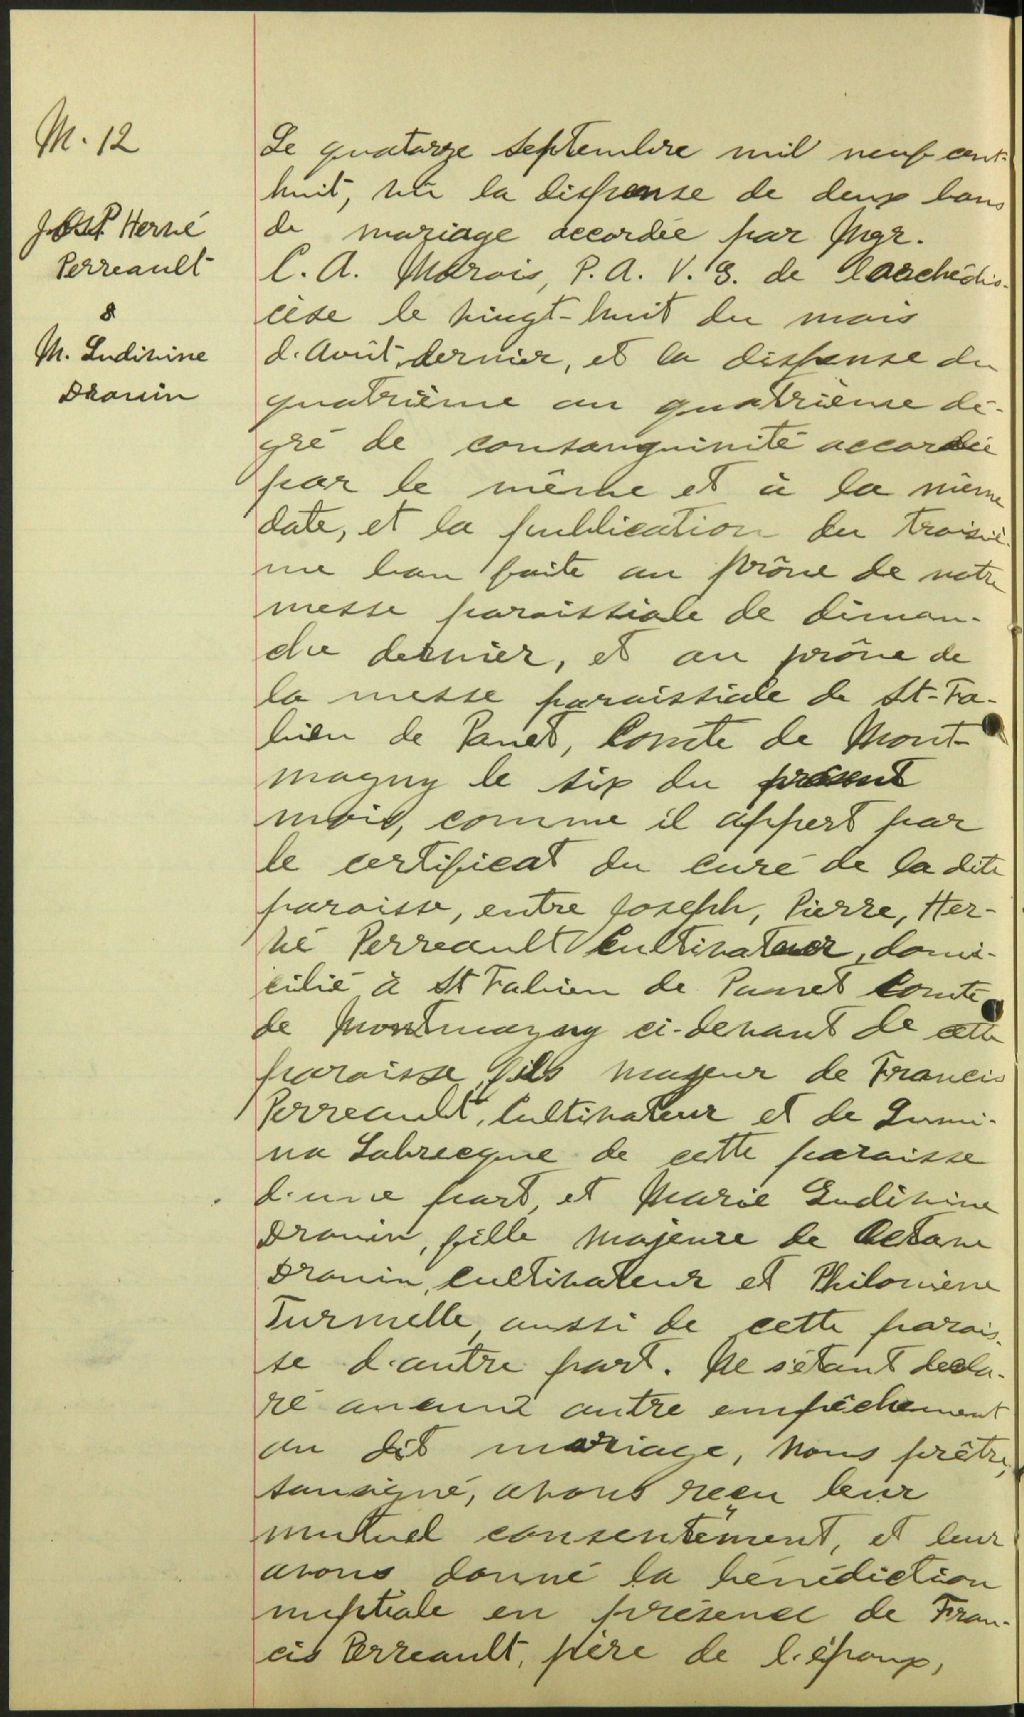 M. 12
Jos. P. Hervé
Perreault
&
M. Ludivine
Drouin
Le quatorze septembre mil neuf cent-
huit, vu la dispense de deux bans
de mariage accordée par Mgr.
C. A. Marois, P. A. V. G. de l'archédio-
cèse le vingt-huit du mois
d'Août dernier, et la dispense du
quatrième au quatrième de-
gré de consanguinité accordée
par le même et à la même
date, et la publication du troisiè-
me ban faite au prône de notre
messe paroissiale de diman-
che dernier, et au prône de
la messe paroissiale de St-Fa-
bien de Panet, Comté de Mont-
magny le six du présent
mois, comme il appert par
le certificat du curé de la dite
paroisse, entre Joseph, Pierre, Her-
vé Perreault Cultivateur, domi-
cilié à St Fabien de Pannet Comté
de Montmagny ci-devant de cette
paroisse, fils majeur de Francis
Perreault, Cultivateur et de Lumi-
na Labrecque de cette paroisse
d'une part, et Marie Ludivine
Drouin, fille majeure de Octave
Drouin, cultivateur et Philomène
Turmelle, aussi de cette parois-
se d'autre part. Ne s'étant decla-
ré aucun autre empêchement
au dit mariage, Nous prêtre,
sousigné, avons reçu leur
mutuel consentement, et leur
avons donné la bénédiction
nuptiale en présence de Fran-
cis Perreault, père de l'époux,